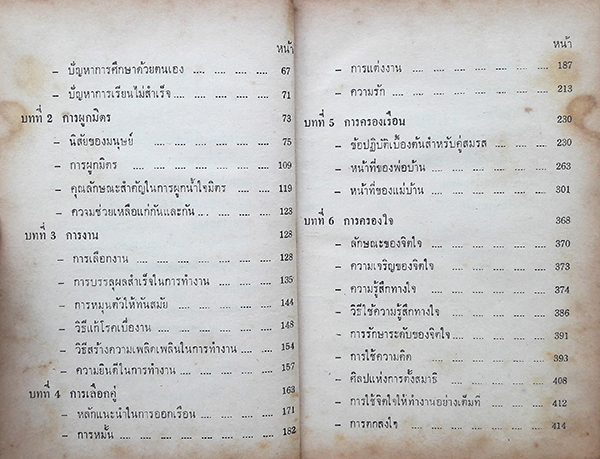 หน้า
– ปัญหาการศึกษาด้วยตนเอง .... .... .... .... 67
– ปัญหาการเรียนไม่สำเร็จ .... .... .... .... 71
บทที่ 2 การผูกมิตร 73
– นิสัยของมนุษย์ .... .... .... .... .... 75
– การผูกมิตร .... .... .... .... .... 109
– คุณลักษณะสำคัญในการผูกน้ำใจมิตร .... .... 119
– ความช่วยเหลือแก่กันและกัน .... .... .... 123
บทที่ 3 การงาน 128
– การเลือกงาน .... .... .... .... .... 128
– การบรรลุผลสำเร็จในการทำงาน .... .... .... 135
– การหมุนตัวให้ทันสมัย .... .... .... .... 144
– วิธีแก้โรคเบื่องาน .... .... .... .... 148
– วิธีสร้างความเพลิดเพลินในการทำงาน .... .... 154
– ความยินดีในการทำงาน .... .... .... .... 157
บทที่ 4 การเลือกคู่ 163
– หลักแนะนำในการออกเรือน .... .... .... .... 171
– การหมั้น .... .... .... .... .... .... 182
หน้า
– การแต่งงาน .... .... .... .... .... 187
– ความรัก .... .... .... .... .... 213
บทที่ 5 การครองเรือน 230
– ข้อปฏิบัติเบื้องต้นสำหรับคู่สมรส .... .... .... 230
– หน้าที่ของพ่อบ้าน .... .... .... .... 263
– หน้าที่ของแม่บ้าน .... .... .... .... 301
บทที่ 6 การครองใจ 368
– ลักษณะของจิตใจ .... .... .... .... 370
– ความเจริญของจิตใจ .... .... .... .... 373
– ความรู้สึกทางใจ .... .... .... .... 374
– วิธีใช้ความรู้สึกทางใจ .... .... .... .... 386
– การรักษาระดับของจิตใจ .... .... .... .... 391
– การใช้ความคิด .... .... .... .... 393
– ศิลปแห่งการตั้งสมาธิ .... .... .... .... 408
– การใช้จิตใจให้ทำงานอย่างเต็มที่ .... .... .... 412
– การตกลงใจ .... .... .... .... .... 414